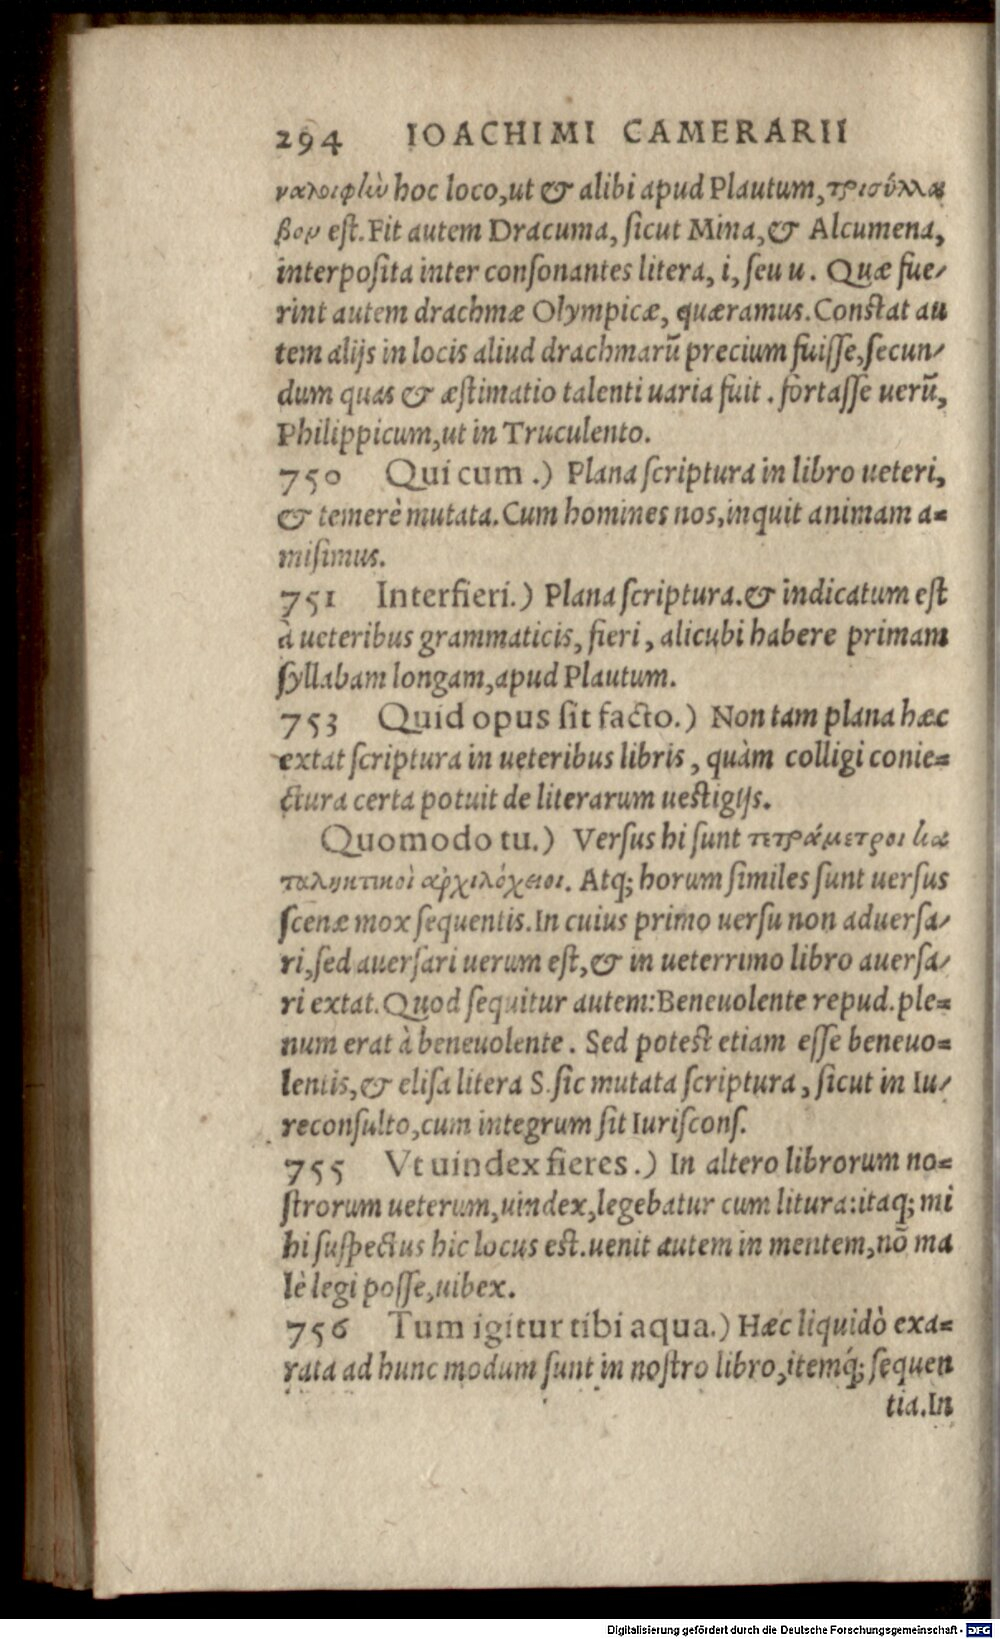 294 IOACHIMI CAMERARII
ναλοιφὼ hoc loco, ut & alibi apud Plautum, τρισύλλα
βον est. Fit autem Dracuma, sicut Mina, & Alcumena,
interposita inter consonantes litera, i, seu u. Quæ fue/
rint autem drachmæ Olympicæ, quæramus. Constat au
tem alijs in locis aliud drachmarū precium fuisse, secun/
dum quas & æstimatio talenti uaria fuit. fortasse uerū,
Philippicum, ut in Truculento.
750 Qui cum.) Plana scriptura in libro ueteri,
& temerè mutata. Cum homines nos, inquit animam a=
misimus.
751 Interfieri.) Plana scriptura. & indicatum est
à ueteribus grammaticis, fieri, alicubi habere primam
syllabam longam, apud Plautum.
753 Quid opus sit facto.) Non tam plana hæc
extat scriptura in ueteribus libris, quàm colligi conie=
ctura certa potuit de literarum uestigijs.
Quomodo tu.) Versus hi sunt τετράμετροι κα
ταληκτικοὶ αρχιλόχειοι. Atq; horum similes sunt uersus
scenæ mox sequentis. In cuius primo uersu non aduersa/
ri, sed auersari uerum est, & in ueterrimo libro auersa/
ri extat. Quod sequitur autem: Beneuolente repud. ple=
num erat à beneuolente. Sed potest etiam esse beneuo=
lentis, & elisa litera S. sic mutata scriptura, sicut in Iu/
reconsulto, cum integrum sit Iuriscons.
755 Vt uindex fieres.) In altero librorum no=
strorum ueterum, uindex, legebatur cum litura: itaq; mi
hi suspectus hic locus est. uenit autem in mentem, nō ma
lè legi posse, uibex.
756 Tum igitur tibi aqua.) Hæc liquidò exa=
rata ad hunc modum sunt in nostro libro, itemq́; sequen
tia. In
Digitalisierung gefördert durch die Deutsche Forschungsgemeinschaft - DFG